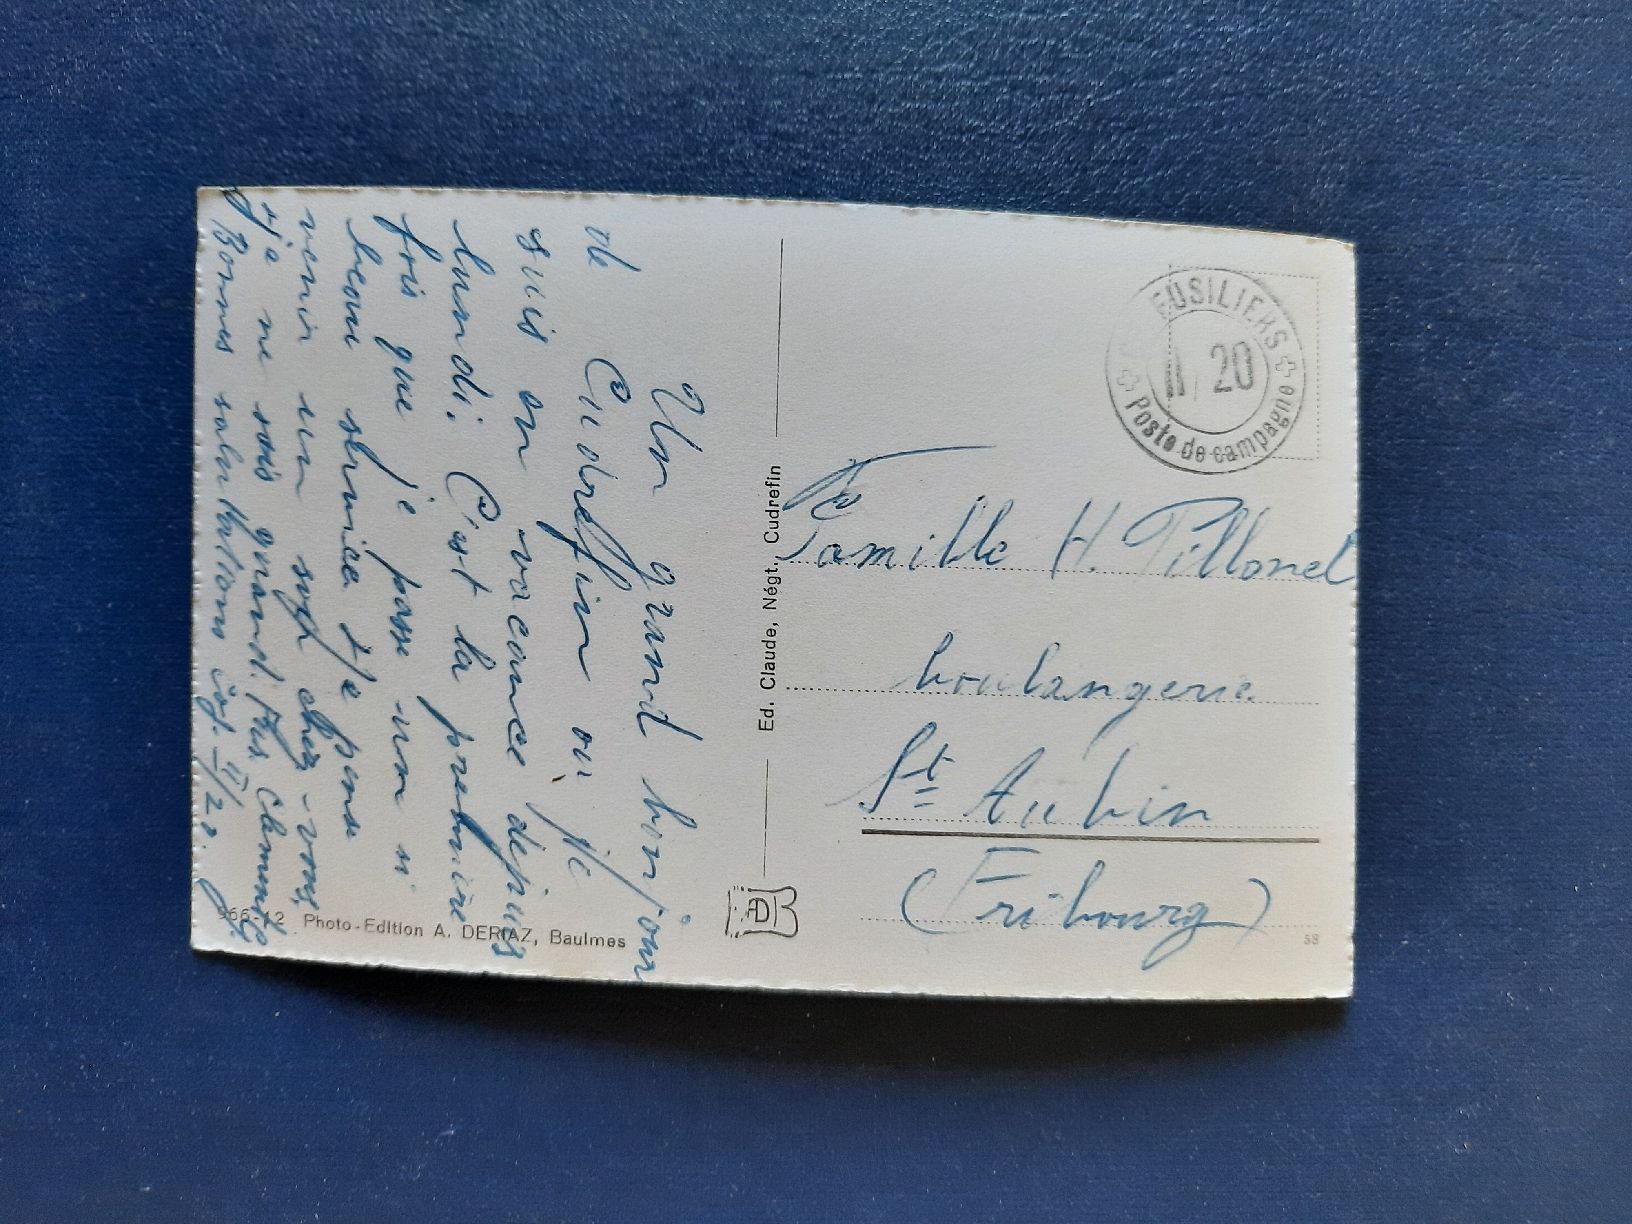 Un grand bonjour
de Cudrefin où je
suis en vacance depuis
lundi. C'est la première
fois que je passe un si
beau service. Je pense
venir un soir chez-vous,
je ne sais quand.
Bonnes salutations
II/20.
966-12 Photo-Edition A. DERIAZ, Baulmes
Ed. Claude, Négt., Cudrefin
FUSILIERS
II/20
Poste de campagne
Famille H. Pillonel
boulangerie
St Aubin
(Fribourg)
58